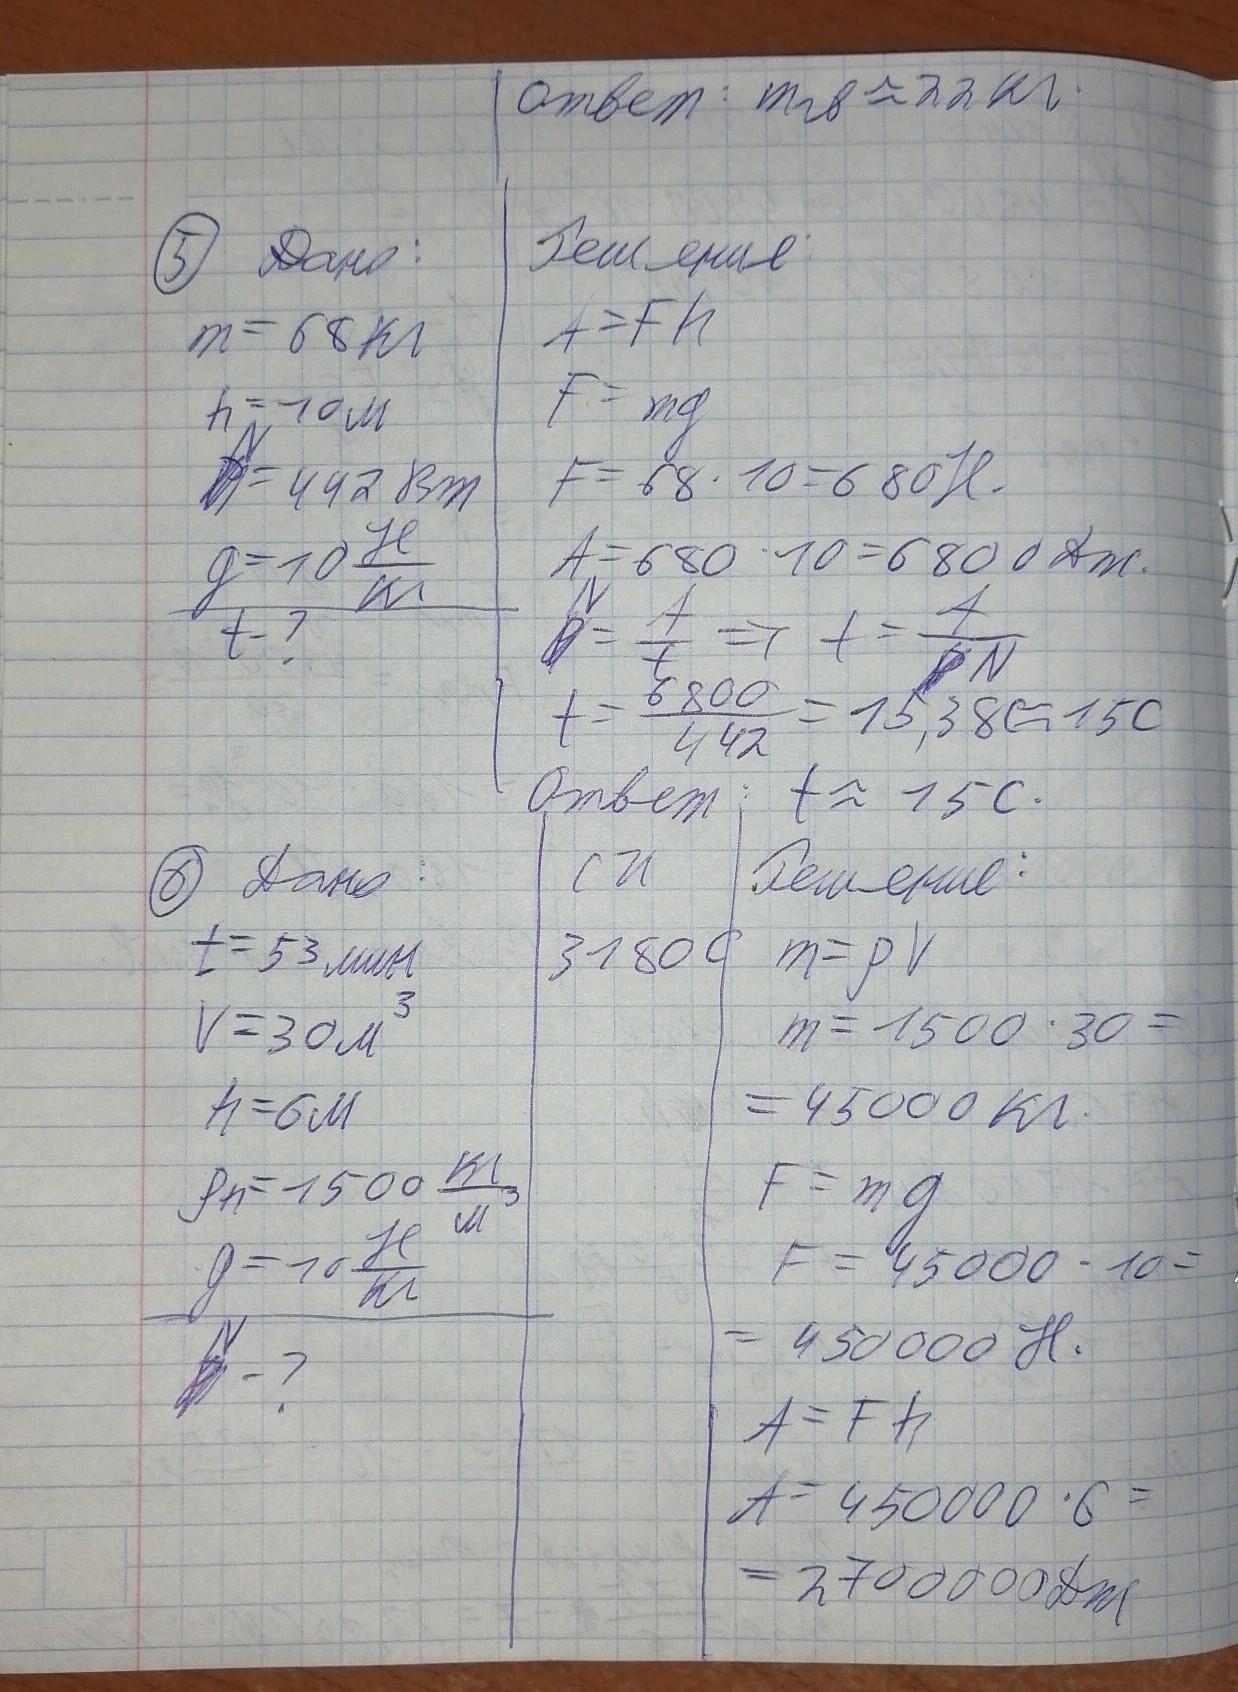 Ответ: mгв ≈ 22 кг.
5 Дано:
m = 68 кг
h = 10 м
N = 442 Вт
g = 10 Н/кг
t - ?
Решение:
A = Fh
F = mg
F = 68 · 10 = 680 Н.
A = 680 · 10 = 6800 Дж.
N = A/t => t = A/N
t = 6800/442 = 15,38 с ≈ 15 с
Ответ: t ≈ 15 с.
6 Дано:
t = 53 мин
V = 30 м³
h = 6 м
ρп = 1500 кг/м³
g = 10 Н/кг
N - ?
СИ
3180 с
Решение:
m = ρV
m = 1500 · 30 =
= 45000 кг.
F = mg
F = 45000 · 10 =
= 450000 Н.
A = Fh
A = 450000 · 6 =
= 2700000 Дж